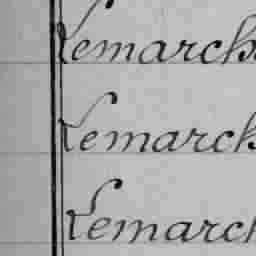 Lemarch
Lemarch
Lemarch